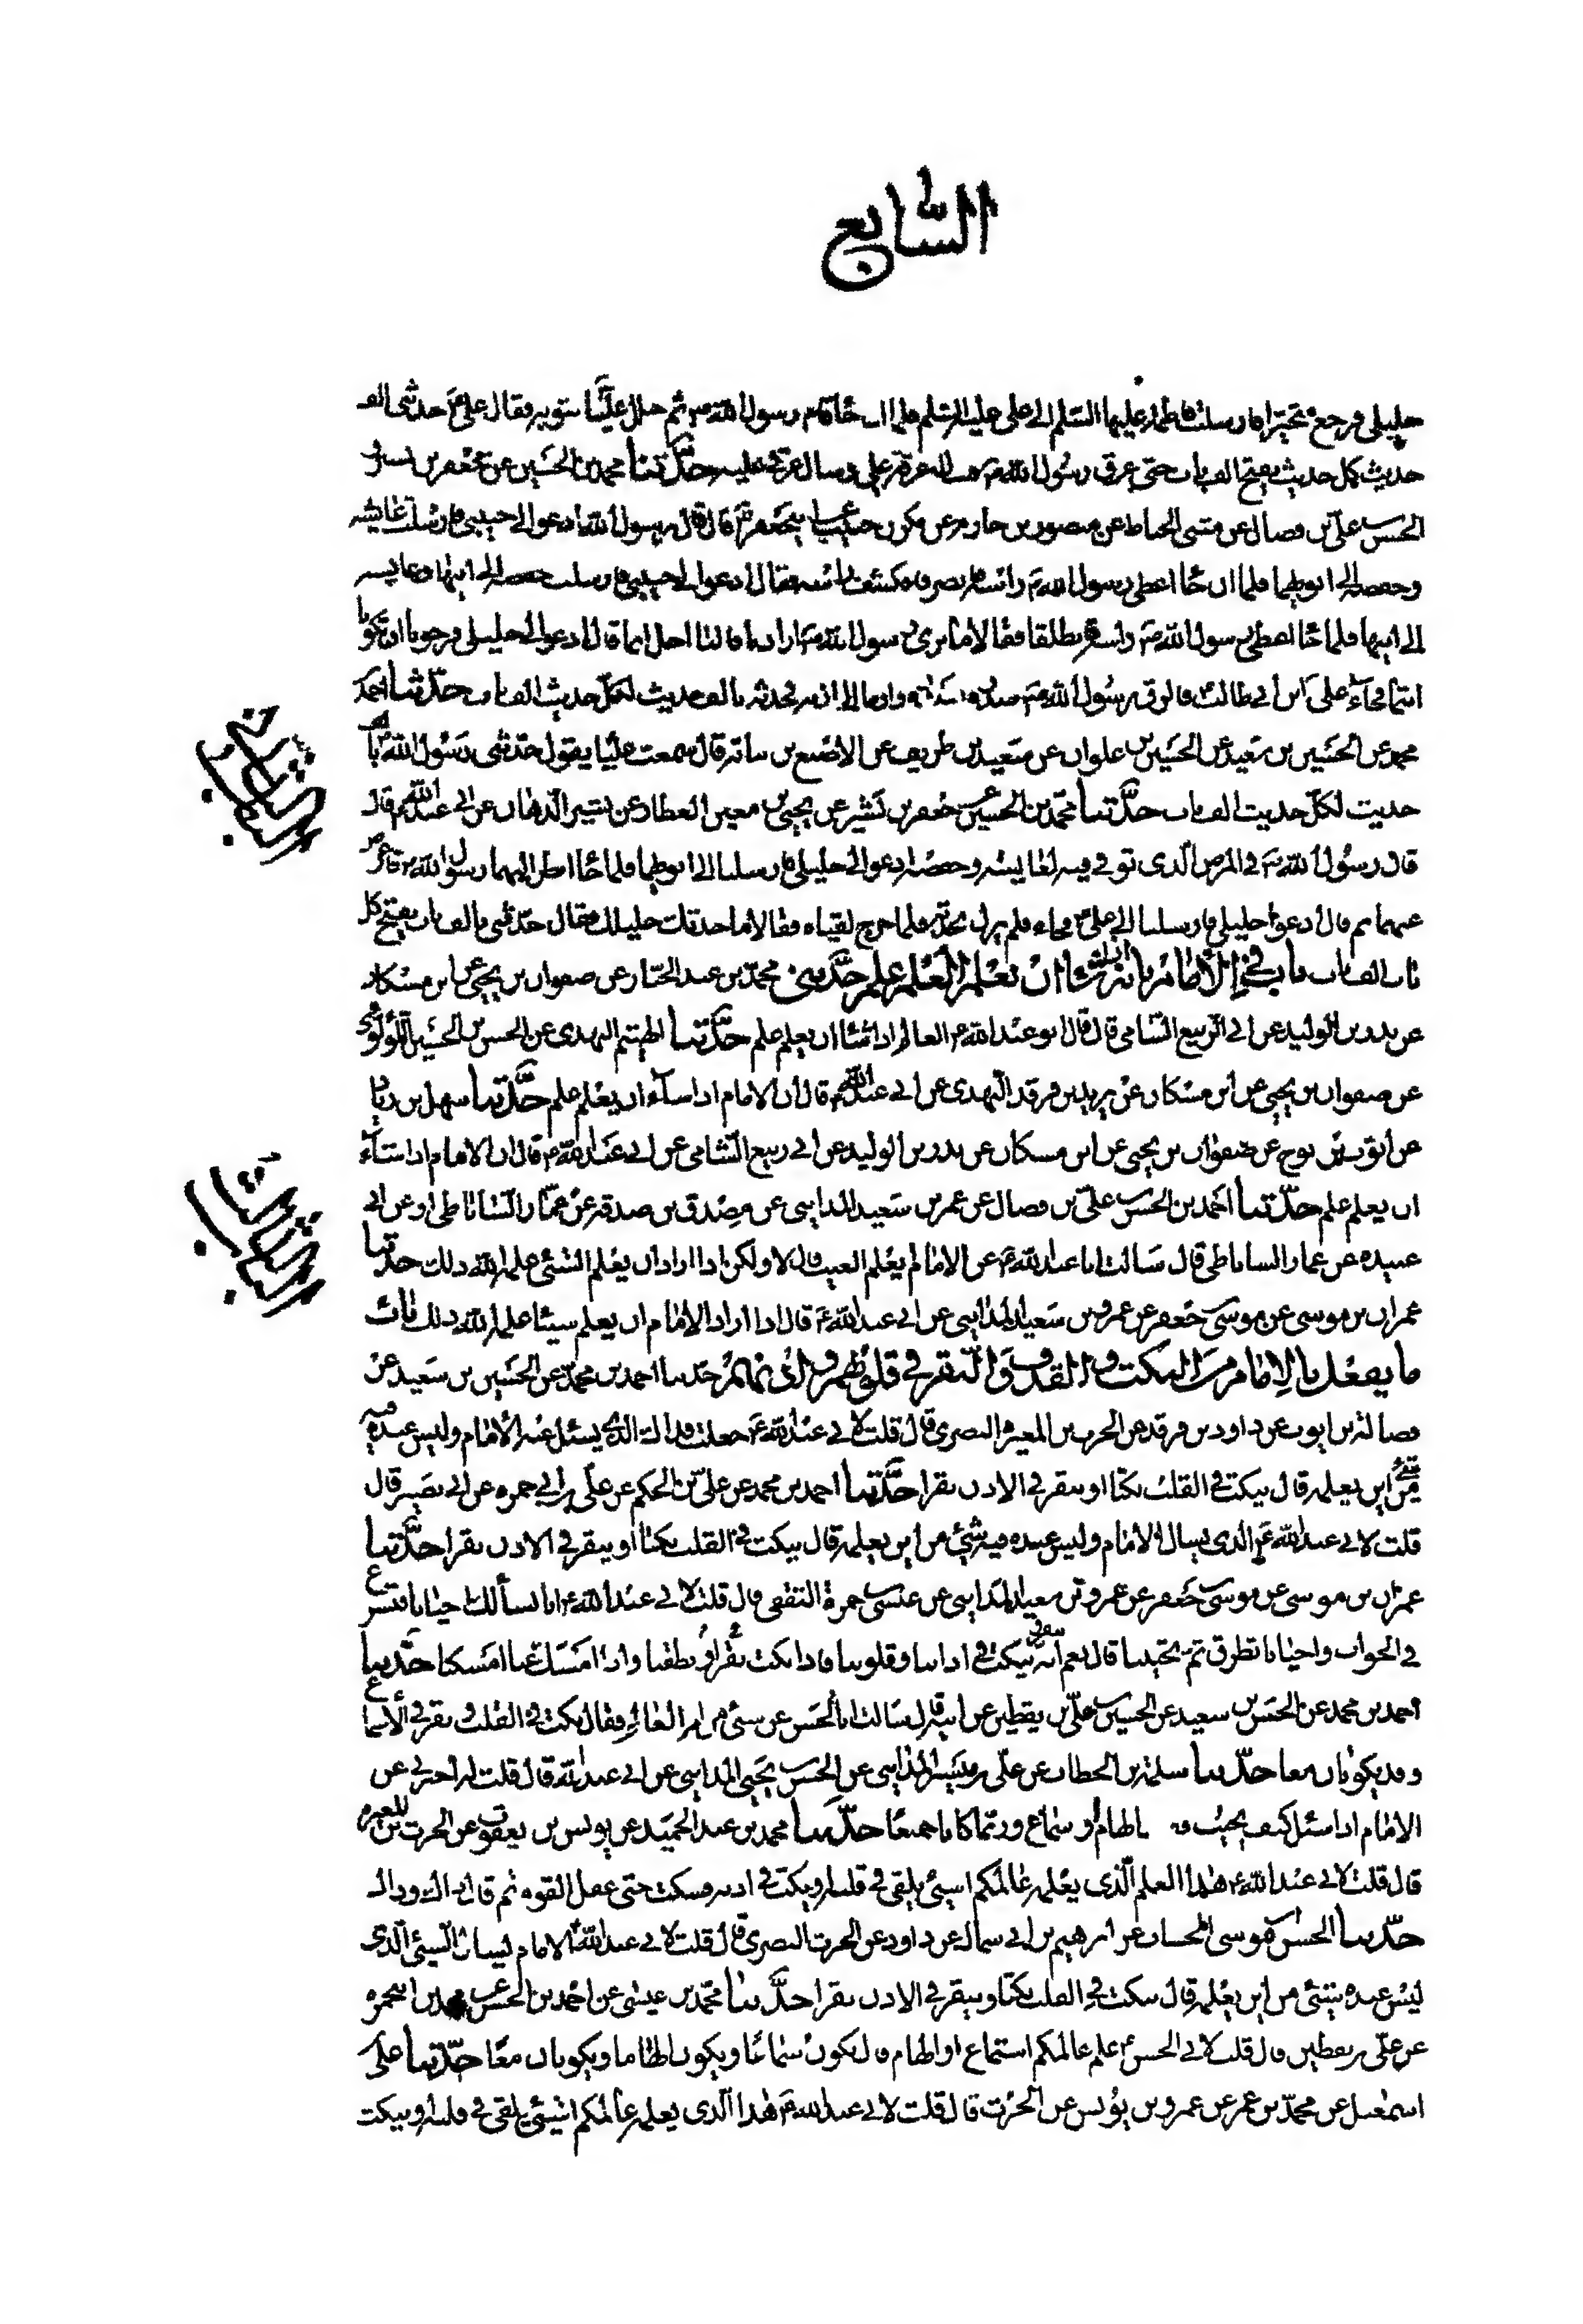 السابع
خليلي فرجع متحيرا فارسلت فاطمة عليها السلم الى علي عليه السلم فلما ان جا قام رسول الله ثم جلل عليا بثوبه فقال علي حدثني الف
حديث كل حديث يفتح الف باب حتى عرق رسول الله عرقه علي وسال عرقي عليه حدثنا محمد بن الحسين عن جعفر بن بشير
الحسن علي بن فضال عن مثنى الحناط عن منصور بن حازم عن بكر بن حبيب عن ابي جعفر قال قال رسول الله ادعوا لي حبيبي فارسلت عايشه
وحفصه الى ابويهما فلما ان جا اعطى رسول الله راسه ثم انصرفا فكشف راسه فقال ادعوا لي حبيبي فارسلت حفصه الى ابيها وعايشه
الى ابيها فلما جا اعطى رسول الله راسه فانطلقا فقالا ما نرى رسول الله ارادنا قالتا اجل انما قال ادعوا لي خليلي فرجونا ان تكونا
انتما فجاء علي ابن ابي طالب فالزق رسول الله صدره واومأ الى اذنه فحدثه بالف حديث لكل حديث الف باب حدثنا احمد
محمد عن الحسين بن سعيد عن الحسين بن علوان عن سعيد بن طريف عن الاصبغ بن نباته قال سمعت عليا يقول حدثني رسول الله بالف
حديث لكل حديث الف باب حدثنا محمد بن الحسين عن جعفر بن بشير عن يحيى بن معمر العطار عن بشير الدهان عن ابي عبد الله قال
قال رسول الله في المرض الذي توفي فيه لعايشه وحفصه ادعوا لي خليلي فارسلتا الى ابويهما فلما جا نظر اليهما رسول الله فاعرض
عنهما ثم قال ادعوا خليلي فارسلتا الى علي فجاء فلم يزل يحدثه فلما خرج لقياه فقالا ما حدثك خليلك فقال حدثني بالف باب يفتح كل
باب الف باب باب في الامام بانه ان شا ان يعلم العلم علم حدثني محمد بن عبد الجبار عن صفوان بن يحيى عن ابن مسكان
عن بدر بن الوليد عن ابي الربيع الشامي قال قال ابو عبد الله العالم اذا شا ان يعلم علم حدثنا الهيثم النهدي عن الحسن بن الحسين اللؤلؤي
عن صفوان بن يحيى عن ابن مسكان عن يزيد بن فرقد النهدي عن ابي عبد الله قال ان الامام اذا شاء ان يعلم علم حدثنا سهل بن زياد
عن ايوب بن نوح عن صفوان بن يحيى عن ابن مسكان عن بدر بن الوليد عن ابي ربيع الشامي عن ابي عبد الله قال ان الامام اذا شاء
ان يعلم علم حدثنا احمد بن الحسن علي بن فضال عن عمر بن سعيد المدايني عن مصدق بن صدقة عن عمار الساباطي او عن ابي
عبيده عن عمار الساباطي قال سالت ابا عبد الله عن الامام يعلم الغيب قال لا ولكن اذا اراد ان يعلم الشئ علمه الله ذلك حدثنا
عمران بن موسى عن موسى جعفر عن عمرو بن سعيد المدايني عن ابي عبد الله قال اذا اراد الامام ان يعلم شيئا علمه الله ذلك باب
ما يفعل بالامام من النكت والقذف والنقر في قلوبهم واذانهم حدثنا احمد بن محمد عن الحسين بن سعيد عن
فضالة بن ايوب عن داود بن فرقد عن الحرث بن المغيره النصري قال قلت لابي عبد الله جعلت فداك الذي يسئل عنه الامام وليس عنده فيه
شئ من اين يعلمه قال ينكت في القلب نكتا او ينقر في الاذن نقرا حدثنا احمد بن محمد عن علي بن الحكم عن علي بن ابي حمزه عن ابي بصير قال
قلت لابي عبد الله الذي يسال الامام وليس عنده فيه شئ من اين يعلمه قال ينكت في القلب نكتا او ينقر في الاذن نقرا حدثنا
عمران بن موسى عن موسى جعفر عن عمرو بن سعيد المدايني عن عنبسه حمزة الثقفي قال قلت لابي عبد الله انا نسألك احيانا فتسرع
في الجواب واحيانا تطرق ثم تجيبنا قال نعم انه ينقر وينكت في اذاننا وقلوبنا فاذا نكت نقر او نطقنا واذا امسك عنا امسكنا حدثنا
احمد بن محمد عن الحسن بن سعيد عن الحسين علي بن يقطين عن ابيه قال سالت ابا الحسن عن شئ من امر العالم فقال نكت في القلب ونقر في الاسماع
وقد يكونان معا حدثنا سلمة بن الخطاب عن علي بن ميسر المدايني عن الحسن يحيى المدايني عن ابي عبد الله قال قلت له اخبرني عن
الامام اذا سئل كيف يجيب فقال الهام او سماع وربما كانا جميعا حدثنا محمد بن عبد الحميد عن يونس بن يعقوب عن الحرث بن المغيره
قال قلت لابي عبد الله هذا العلم الذي يعلمه عالمكم اشئ يلقى في قلبه او ينكت في اذنه فسكت حتى غفل القوم ثم قال ذاك وذاك
حدثنا الحسن موسى الخشاب عن ابرهيم بن ابي سمال عن داود عن الحرث النصري قال قلت لابي عبد الله الامام يسال الشئ الذي
ليس عنده شئ من اين يعلمه قال ينكت في القلب نكتا وينقر في الاذن نقرا حدثنا محمد بن عيسى عن احمد بن الحسن عن محمد بن ابي حمزه
عن علي بن يقطين قال قلت لابي الحسن علم عالمكم استماع او الهام قال يكون سماعا ويكون الهاما ويكونان معا حدثنا علي
اسمعيل عن محمد بن عمر عن عمرو بن يونس عن الحرث قال قلت لابي عبد الله هذا الذي يعلمه عالمكم اشئ يلقى في قلبه او ينكت
الباب الثاني
الباب الثالث